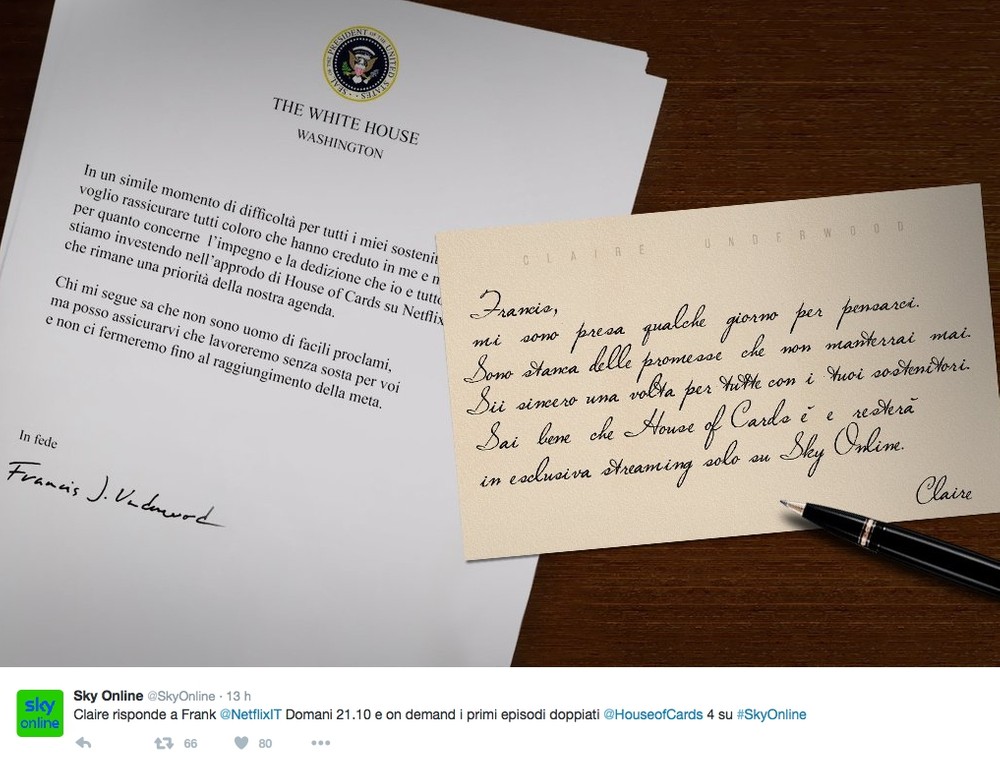 SEAL OF THE PRESIDENT OF THE UNITED STATES
THE WHITE HOUSE
WASHINGTON
In un simile momento di difficoltà per tutti i miei sosteni
voglio rassicurare tutti coloro che hanno creduto in me e n
per quanto concerne l'impegno e la dedizione che io e tutto
stiamo investendo nell'approdo di House of Cards su Netflix
che rimane una priorità della nostra agenda.
Chi mi segue sa che non sono uomo di facili proclami,
ma posso assicurarvi che lavoreremo senza sosta per voi
e non ci fermeremo fino al raggiungimento della meta.
In fede
Francis J. Underwood
CLAIRE UNDERWOOD
Francis,
mi sono presa qualche giorno per pensarci.
Sono stanca delle promesse che non manterrai mai.
Sii sincero una volta per tutte con i tuoi sostenitori.
Sai bene che House of Cards è e resterà
in esclusiva streaming solo su Sky Online.
Claire
sky
online
Sky Online @SkyOnline · 13 h
Claire risponde a Frank @NetflixIT Domani 21.10 e on demand i primi episodi doppiati @HouseofCards 4 su #SkyOnline
66 80